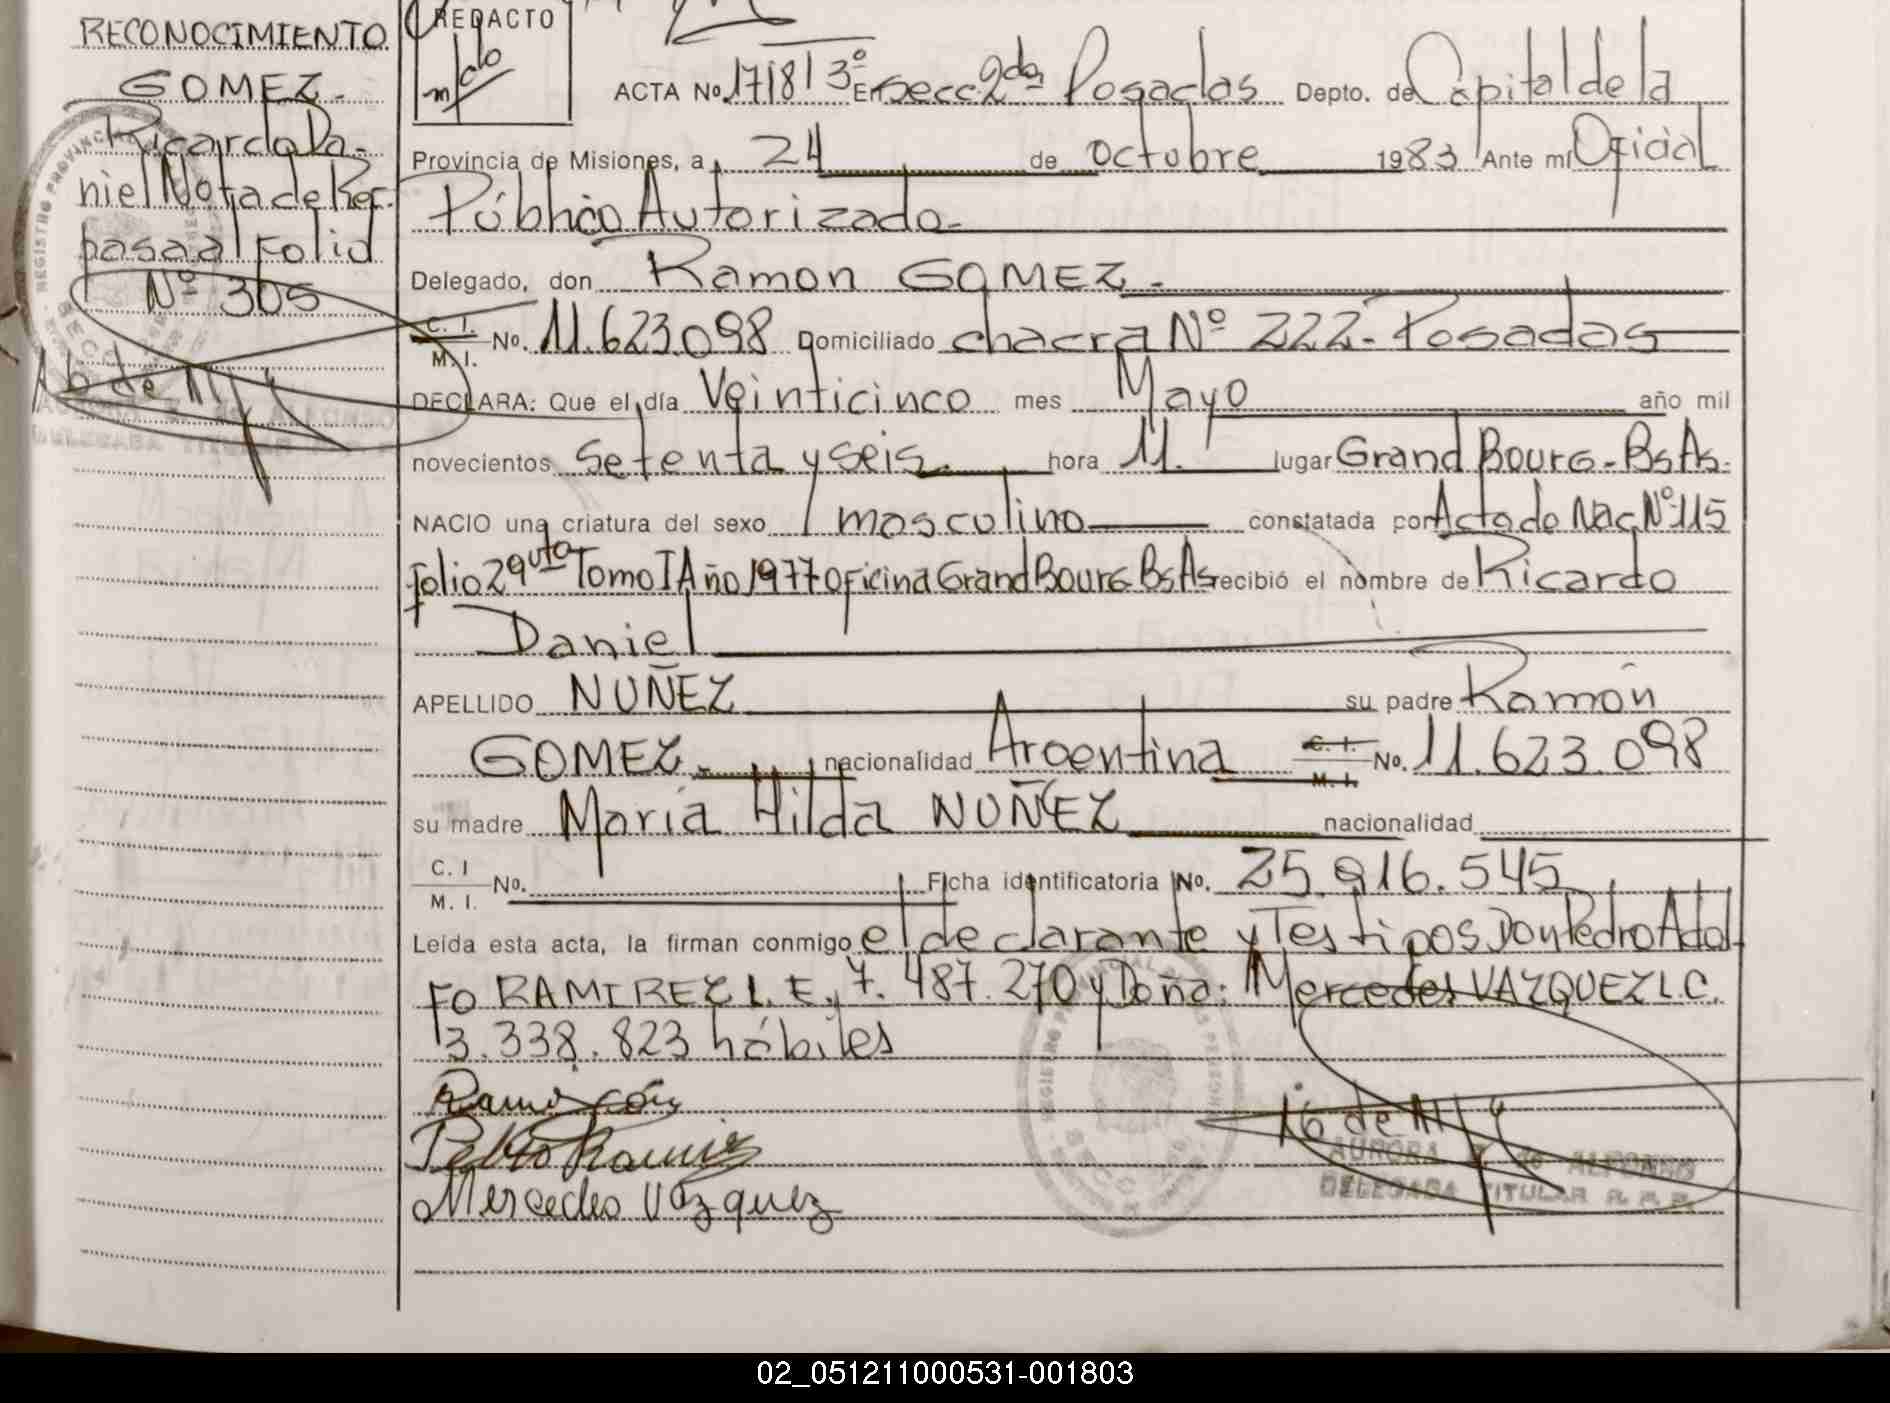 RECONOCIMIENTO
GOMEZ.-
Ricardo Da-
niel Nota de Ref.
pasa al Folio
Nº 305
REDACTO
ACTA No. 1718 | 3º En secc. 2da Posadas Depto. de Capital de la
Provincia de Misiones, a 24 de octubre 1983 Ante mí Oficial
Público Autorizado.-
Delegado, don Ramon GOMEZ.-
C. I.
M. I. No. 11.623.098 Domiciliado chacra Nº 222- Posadas
DECLARA: Que el día Veinticinco mes Mayo año mil
novecientos setenta y seis. hora 11. lugar Grand Bourg-BsAs.
NACIO una criatura del sexo masculino constatada por Acta de Nac Nº 115
folio 29 vta Tomo I Año 1977 Oficina Grand Bourg BsAs recibió el nombre de Ricardo
Daniel
APELLIDO NUÑEZ su padre Ramón
GOMEZ.- nacionalidad Argentina C. I.
M. I. No. 11.623.098
su madre María Hilda NUÑEZ nacionalidad
C. I
M. I. No. Ficha identificatoria No. 25.916.545
Leída esta acta, la firman conmigo el declarante y Testigos Don Pedro Adol-
FO RAMIREZ L.E. 7.487.270 y Doña: Mercedes VAZQUEZ L.C.
3.338.823 hábiles
Pedro Ramirez
Mercedes Vázquez
AURORA de ALFONSO
DELEGADA TITULAR R.P.P.
02_051211000531-001803